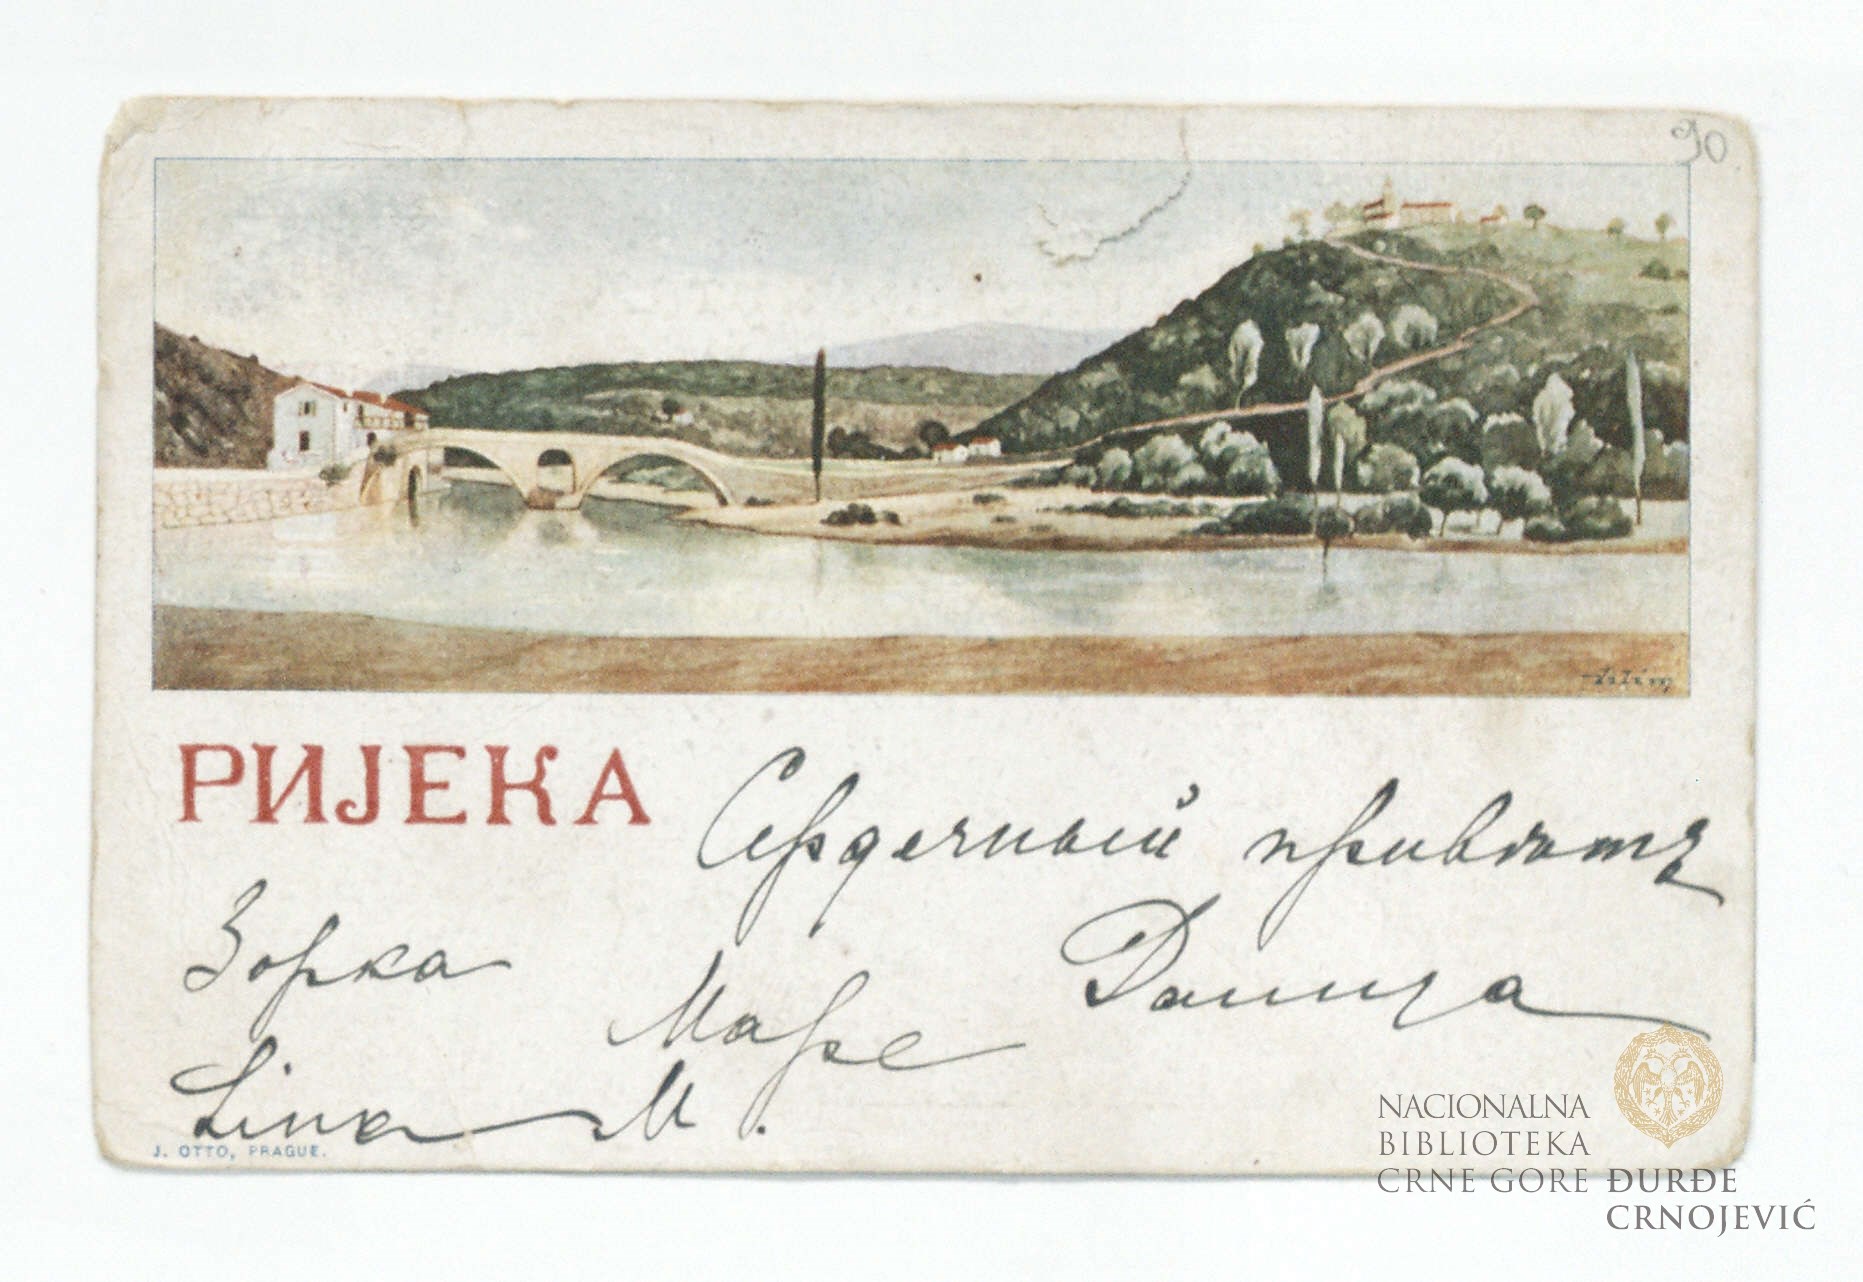 90
РИЈЕКА
Сердечный привѣтъ
Зорка
Маре
Даница
Lina M.
J. OTTO, PRAGUE.
NACIONALNA
BIBLIOTEKA
CRNE GORE ĐURĐE
CRNOJEVIĆ